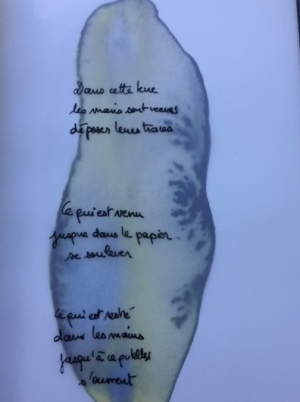 Dans cette
les mains sont venues
déposer leurs traces
Ce qui est venu
jusque dans le papier
se soulever
Ce qui est resté
dans les mains
jusqu'à ce qu'elles
s'aument